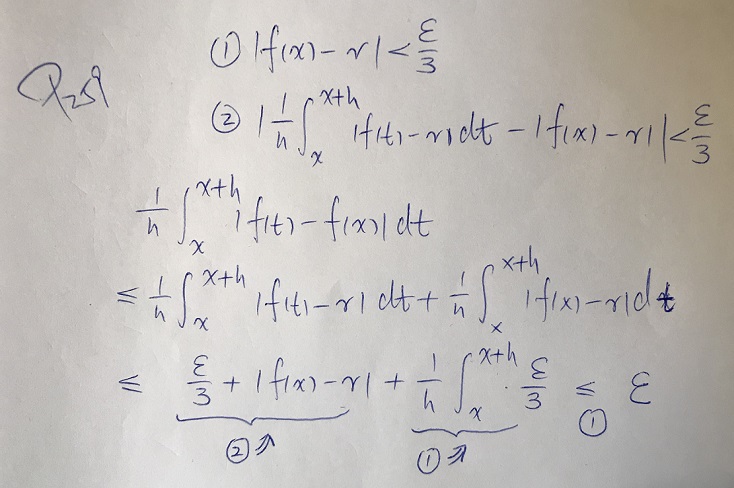 ① |f(x) - r| < ε/3
P259
② |1/h ∫_x^{x+h} |f(t) - r| dt - |f(x) - r|| < ε/3
1/h ∫_x^{x+h} |f(t) - f(x)| dt
≤ 1/h ∫_x^{x+h} |f(t) - r| dt + 1/h ∫_x^{x+h} |f(x) - r| dt
≤ ε/3 + |f(x) - r| + 1/h ∫_x^{x+h} ε/3 ≤ ε
② ↗ ① ↗ ①